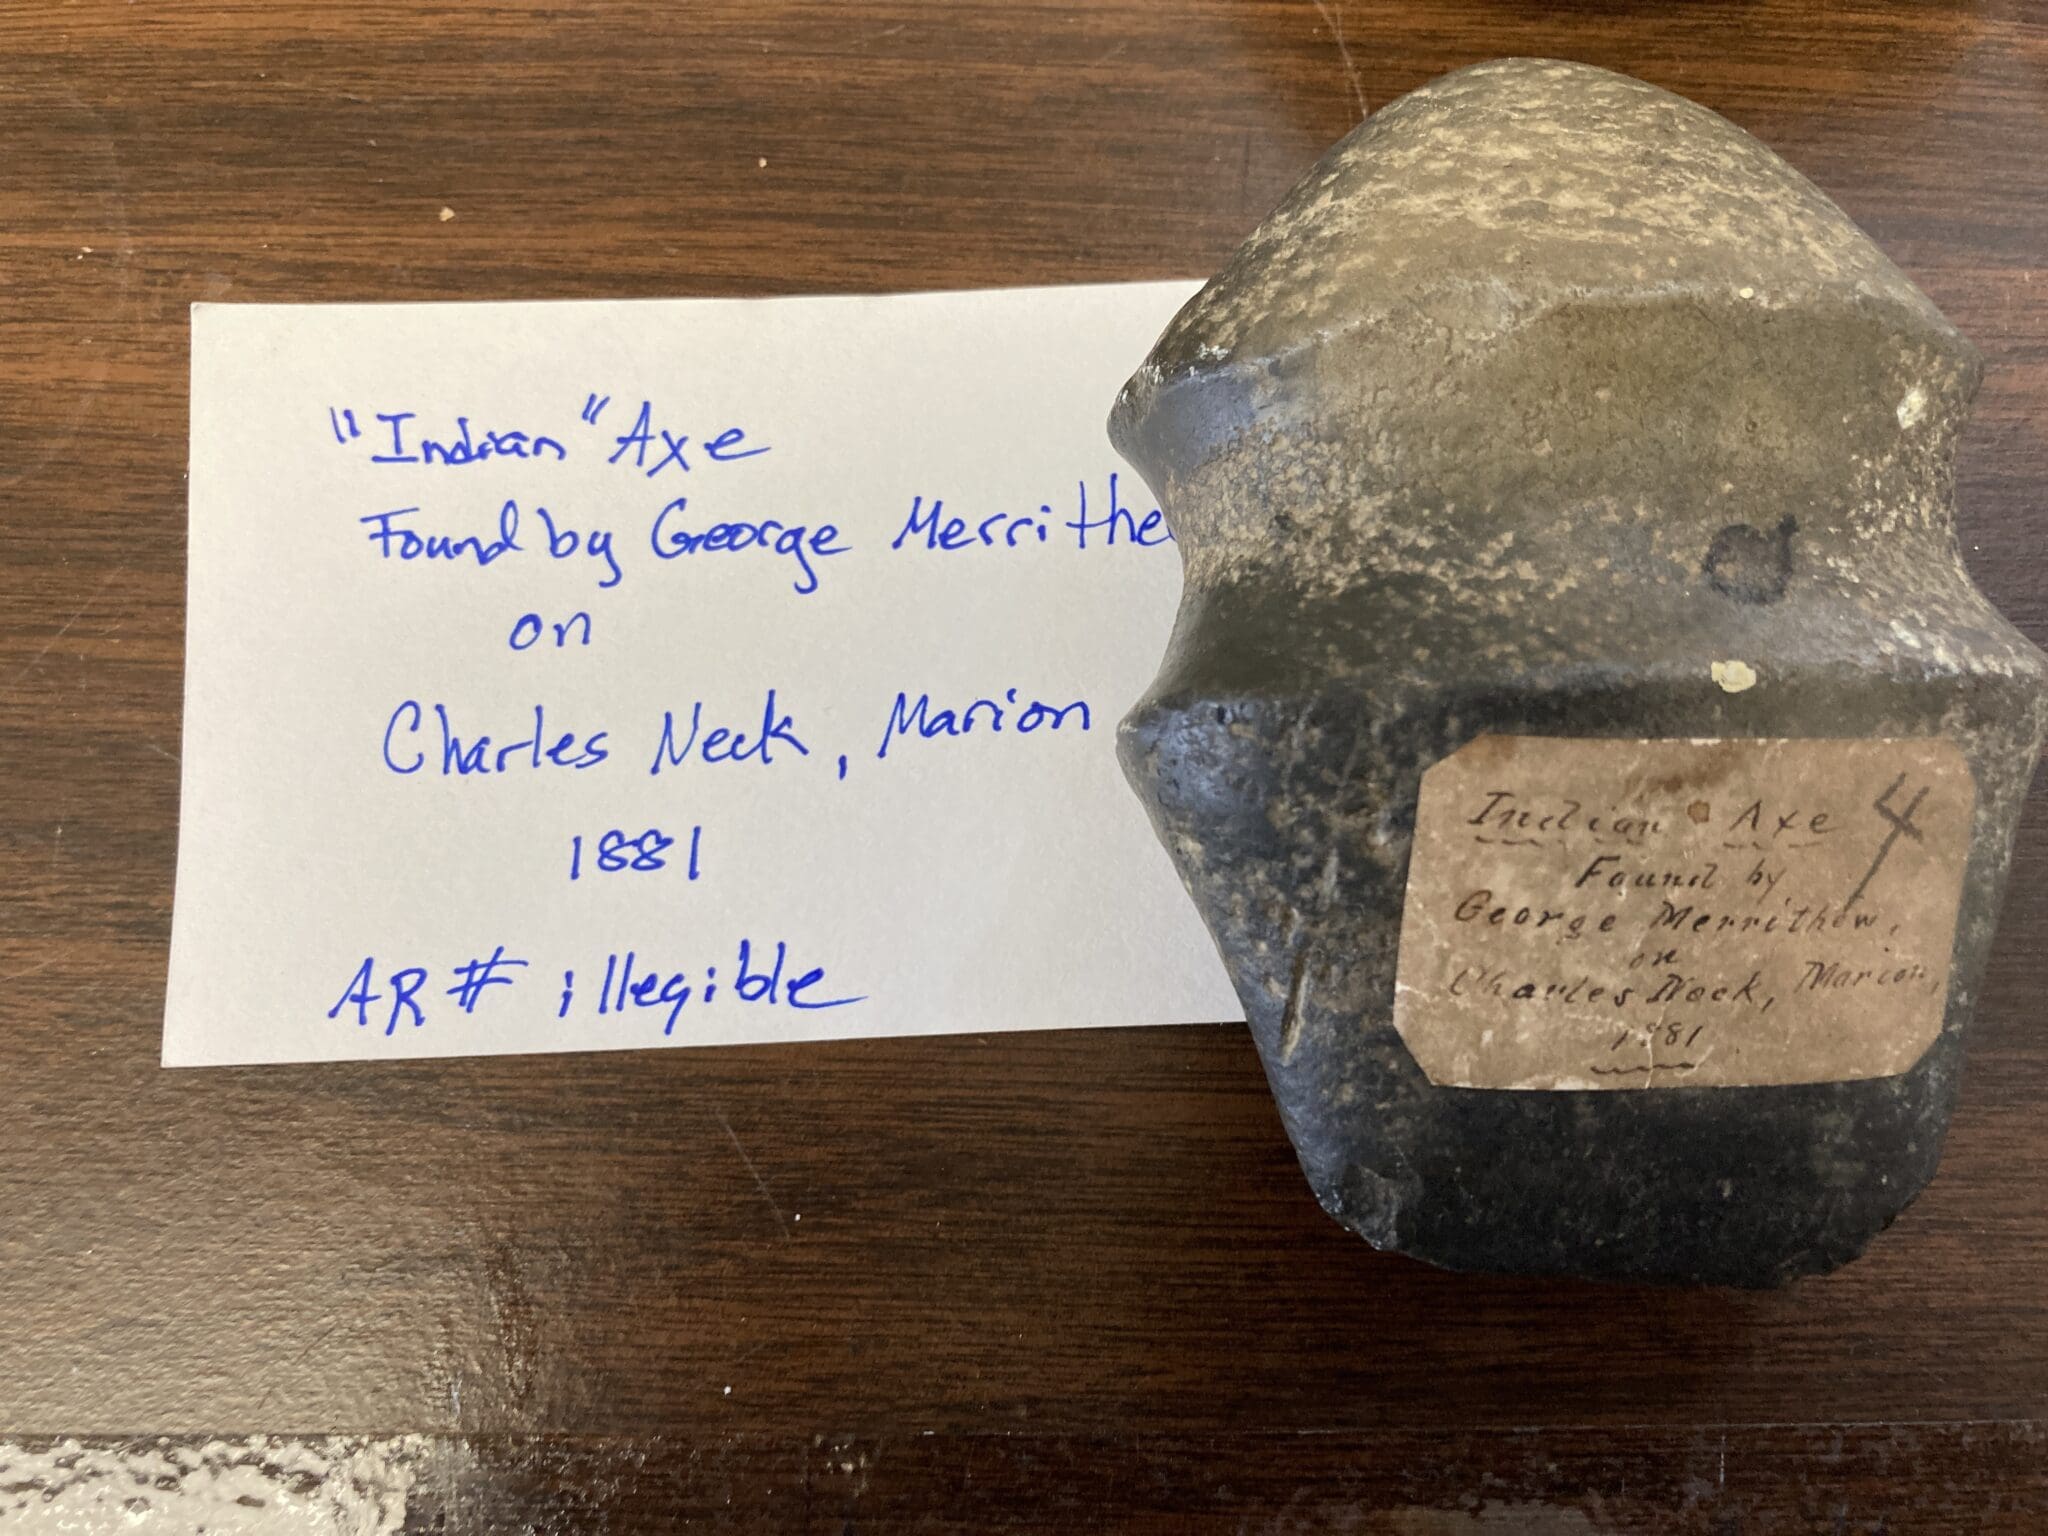 "Indian" Axe
Found by George Merrithe
on
Charles Neck, Marion
1881
AR # illegible
Indian Axe 4
Found by
George Merrithew,
on
Charles Neck, Marion,
1881